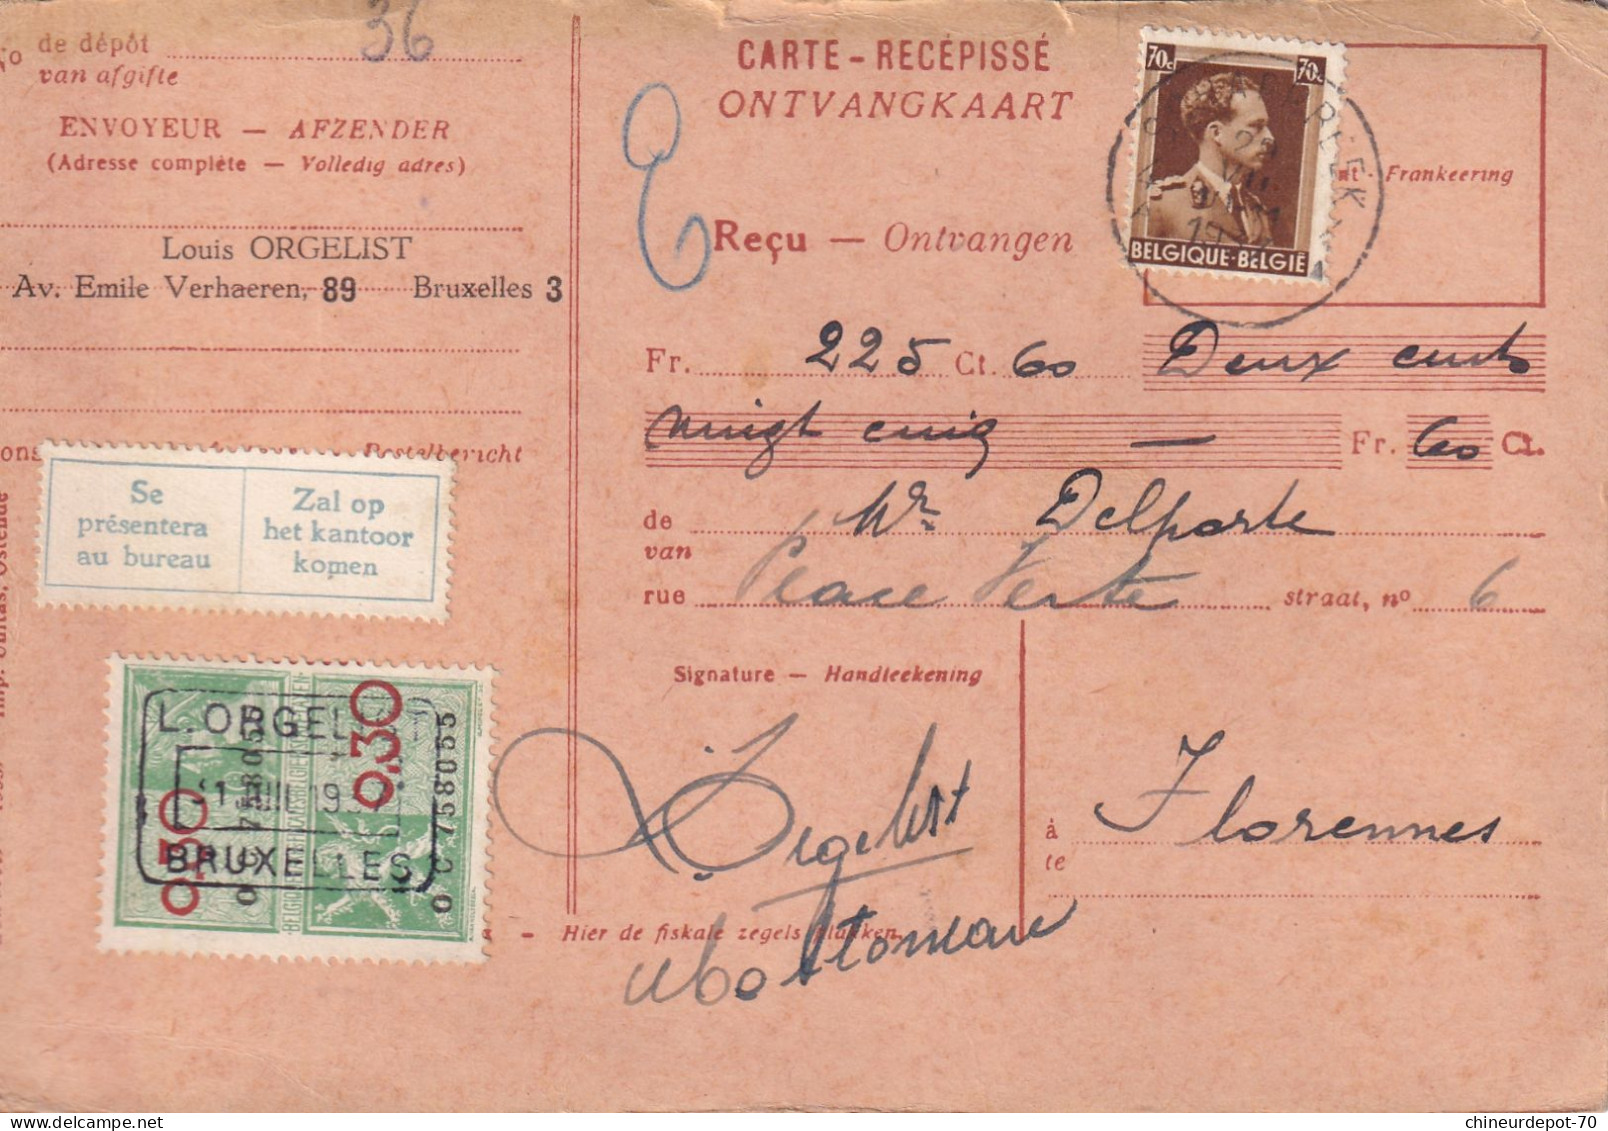 No de dépôt
van afgifte
36
ENVOYEUR — AFZENDER
(Adresse complète — Volledig adres)
Louis ORGELIST
Av. Emile Verhaeren, 89 Bruxelles 3
Postelbericht
Se
présentera
au bureau
Zal op
het kantoor
komen
0.30
0.30
0758055
L. ORGELIST
BRUXELLES
CARTE - RECÉPISSÉ
ONTVANGKAART
70c 70c
BELGIQUE-BELGIE
Frankeering
Reçu — Ontvangen
Fr. 225 Ct. 60 Deux cents
vingt cinq — Fr. 60 Ct.
de Mr Delporte
van
rue Place Verte straat, no 6
Signature — Handteekening
Orgelist
à Florennes
te
- Hier de fiskale zegels plakken.
chineurdepot-70